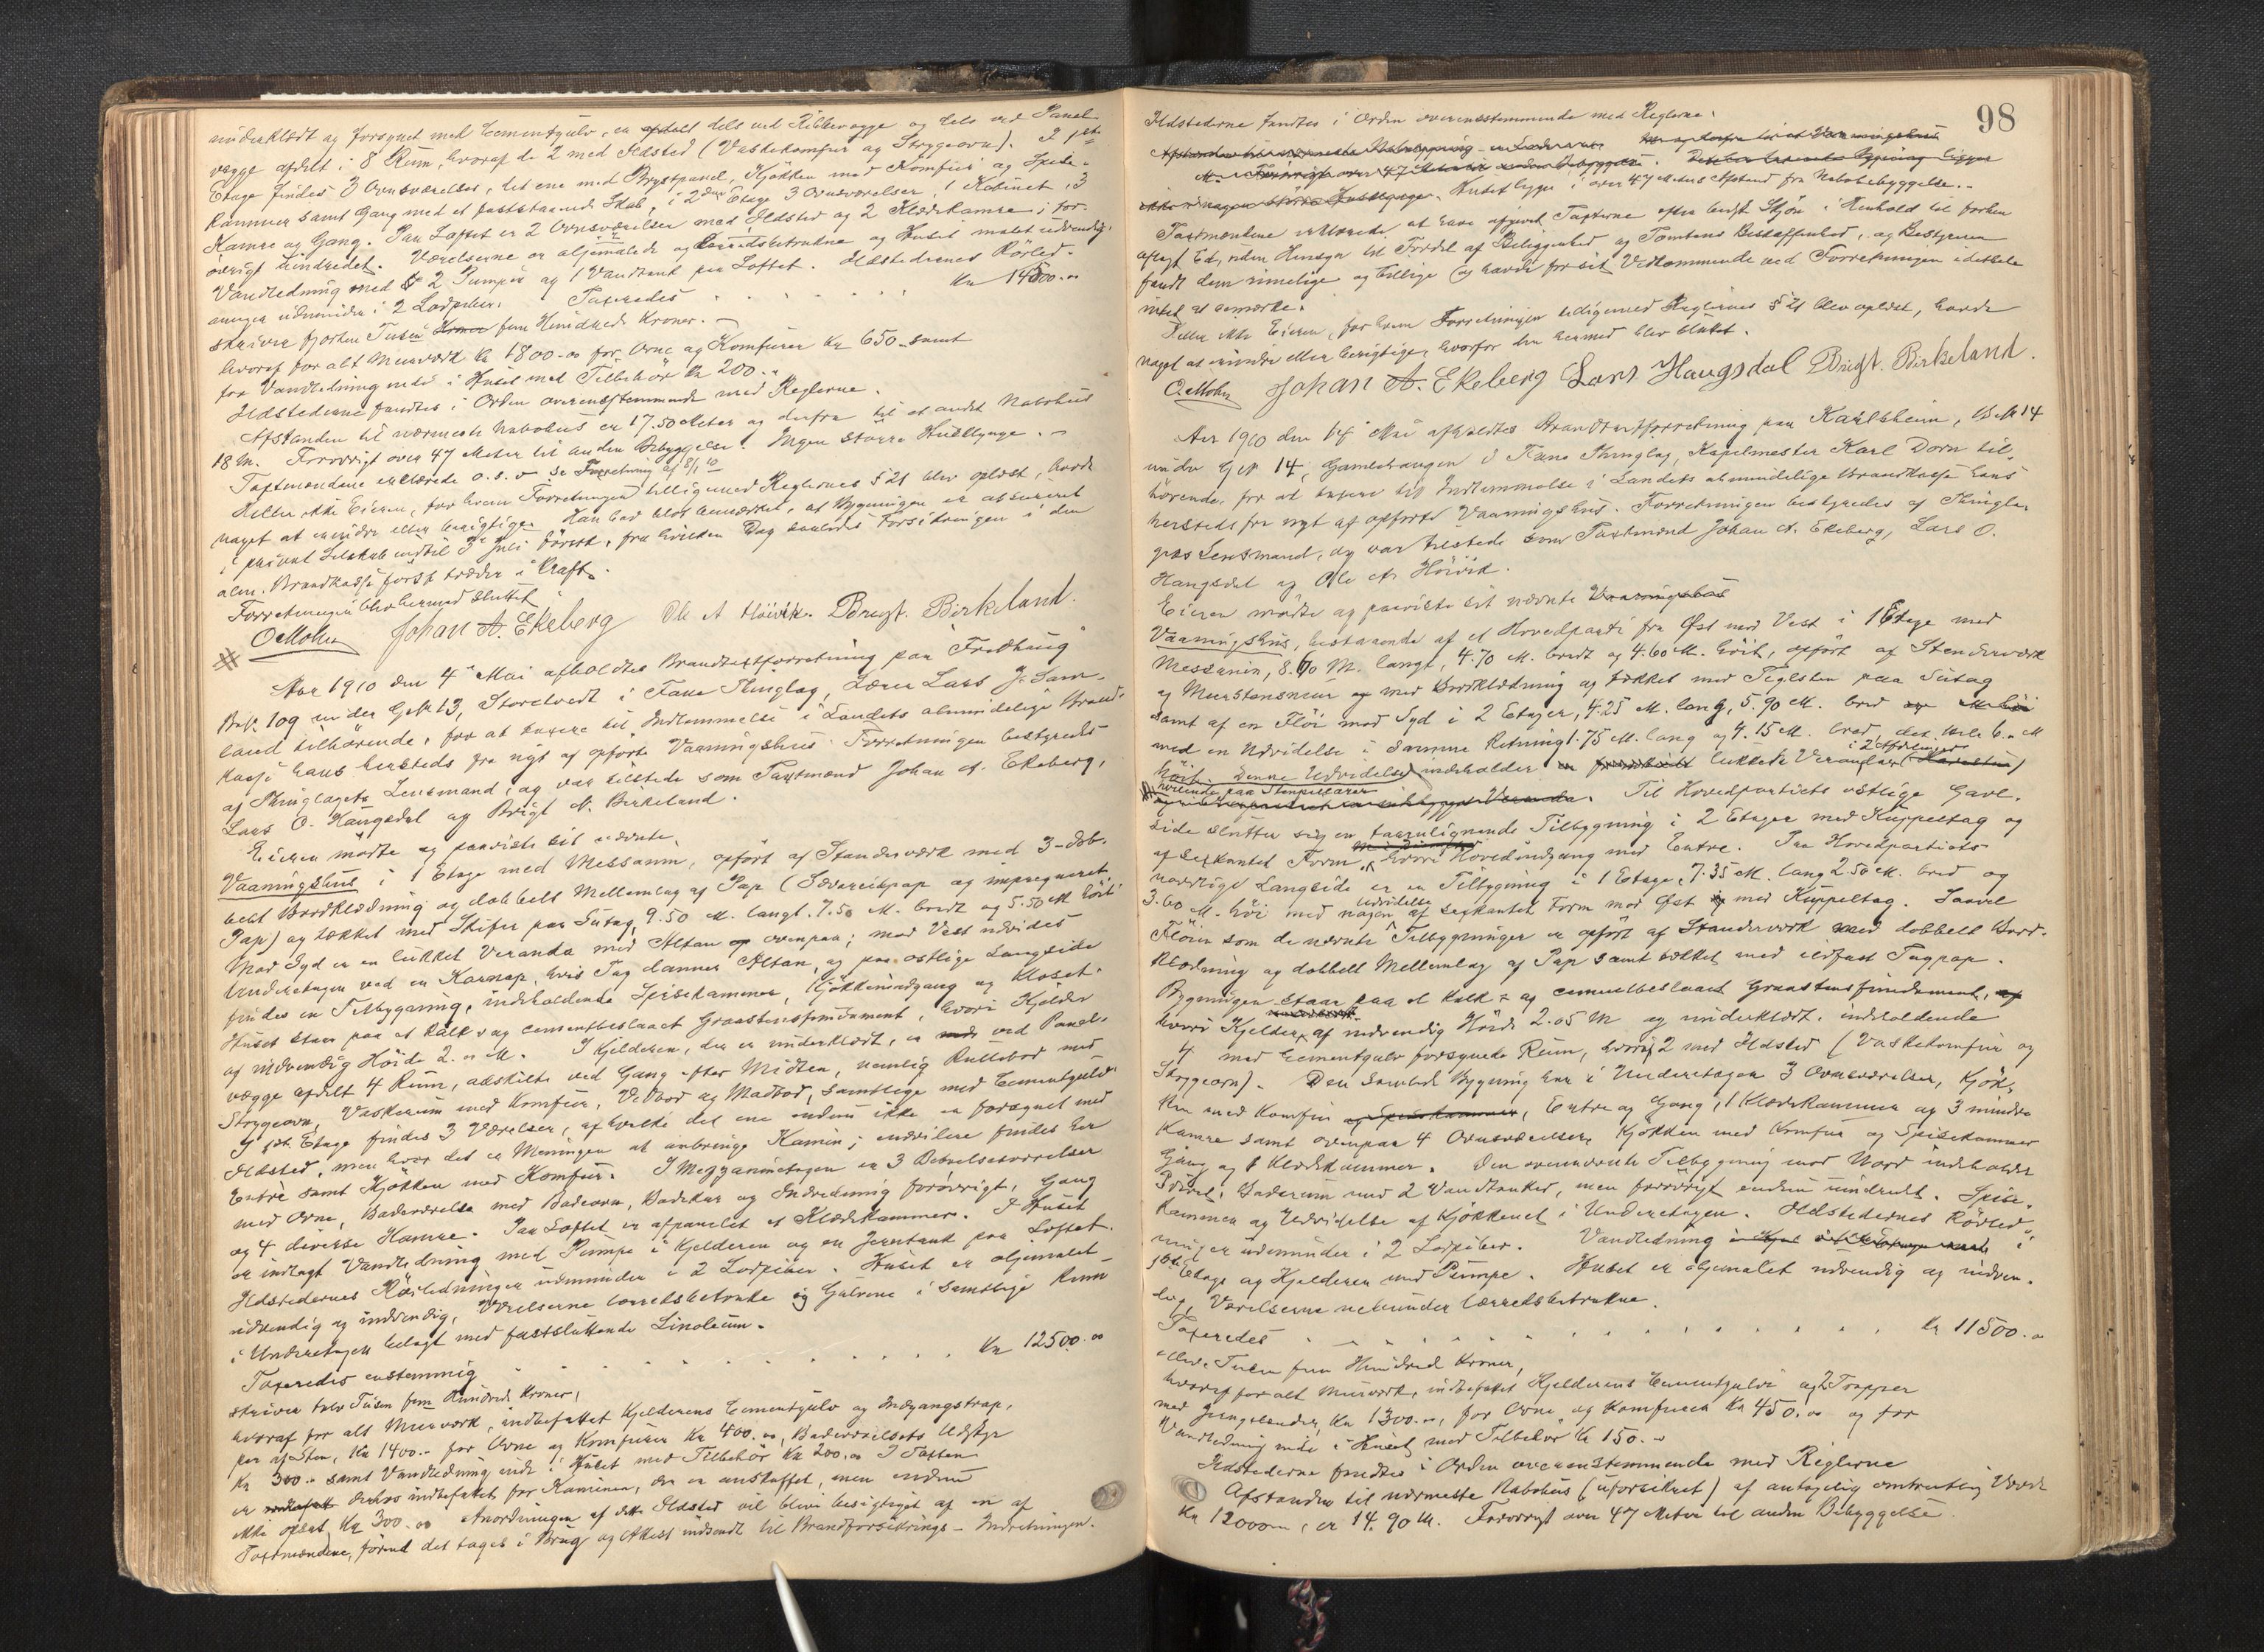 underklædt og forsynet med Cementgulv, er dels ved Ribbevægge og dels ved Panel
vægge afdelt i 8 Rum, hvoraf de 2 med Ildsted (Vaskekomfur og Strygeovn). I 1ste
Etage findes 3 Ovnsværelser, det ene med Brystpanel, Kjøkken med Komfur og Spise-
kammer samt Gang med et faststaaende Skab, i 2den Etage 3 Ovnsværelser, 1 Kabinet, 3
Kamre og Gang. Paa Loftet er 2 Ovnsværelser med Ildsted og 2 Klædekamre, for-
øvrigt uindredet. Værelserne er oljemalede og lærredsbetrukne og Huset malet udvendig.
Vandledning med 2 Pumper og 1 Vandtank paa Loftet. Ildstedrenes Rörled-
ninger udmunder i 2 Lodpiber. Taxeredes Kr 14500.00
skriver fjorten Tusen fem Hundrede Kroner.
hvoraf for alt Murværk Kr 1800.00 for Ovne og Komfurer Kr 650.- samt
for Vandledning inde i Huset med Tilbehör Kr 200.-
Ildstederne fandtes i Orden overensstemmende med Reglerne.
Afstanden til nærmeste Nabohus er 17.50 Meter og derfra til et andet Nabohus
18 M. Forøvrigt over 47 Meter til anden Bebyggelse. Ingen større Husklynge.
Taxtmændene erklærede o.s.v. se Forretning af
Heller ikke Eieren, for hvem Forretningen tilligemed Reglernes § 21 blev oplæst, havde
noget at erindre eller berigtige. Han bad blot bemærket, at Bygningen er assureret
i privat Selskab indtil 3die Juli førstk., fra hvilken Dag saaledes Forsikringen i den
alm. Brandkasse først træder i Kraft.
Forretningen blev hermed sluttet
OMohn Johan A. Ekeberg Ole A Höivik. Brigt. Birkeland.
Aar 1910 den 4de Mai afholdtes Brandtaxtforretning paa "Fredhaug"
Bnr. 109 under Gnr 13, Storetvedt i Fana Thinglag, Lærer Lars J. Sam-
land tilhørende, for at taxere til Indlemmelse i Landets almindelige Brand-
kasse hans hersteds fra nyt af opførte Vaaningshus. Forretningen bestyredes
af Thinglagets Lensmand, og var tilstede som Taxtmænd Johan A. Ekeberg,
Lars O. Haugsdal og Brigt N. Birkeland.
Eieren mødte og paaviste sit nævnte
Vaaningshus i 1 Etage med Messanin, opført af Stenderværk med 3-dob-
belt Bordklædning og dobbelt Mellemlag af Pap (Pap og impregneret
Pap) og tækket med Skifer paa Sutag, 9.50 M. langt. 7.50 M. bredt og 5.50 M høit
Mod Syd er en lukket Veranda med Altan ovenpaa; mod Vest udvides
Underetagen ved en Karnap, hvis Tag danner Altan, og paa østlige Langside
findes en Tilbygning, indeholdende Spisekammer, Kjøkkenindgang og Kloset.
Huset staar paa et kalk- og cementbeslaaet Graastensfundament, hvori Kjelder
af indvendig Høide 2.00 M. I Kjelderen, der er underklædt, er ved Panel-
vægge afdelt 4 Rum, adskilte ved Gang efter Midten, nemlig Rullebod med
Strygeovn, Vaskerum med Komfur, Vedbod og Madbod, samtlige med Cementgulv.
I 1ste Etage findes 3 Værelser, af hvilke det ene endnu ikke er forsynet med
Ildsted, men hvor det er Meningen at anbringe Kamin; endvidere findes her
Entrè samt Kjøkken med Komfur. I Mezzaninetagen er 3 Beboelsesværelser
med Ovne, Badeværelse med Badeovn, Badekar og Indredning forøvrigt, Gang
og 4 diverse Kamre. Paa Loftet er afpanelet et Klædekammer. I Huset
er indlagt Vandledning med Pumpe i Kjelderen og en Jerntank paa Loftet.
Ildstedernes Rørledninger udmunder i 2 Lodpiber. Huset er oljemalet
udvendig og indvendig, Værelserne lærredsbetrukne og Gulvene i samtlige Rum
i Underetagen belagt med fastsluttende Linoleum.
Taxeredes enstemmig Kr 12500.00
skriver tolv Tusen fem Hundrede Kroner,
hvoraf for alt Murværk, indbefattet Kjelderens Cementgulv og Indgangstrap-
per af Sten, Kr 1400.- for Ovne og Komfurer Kr 400.00, Badeværelsets Udstyr
Kr 300.- samt Vandledning inde i Huset med Tilbehør Kr 200.00 I Taxten
er derhos indbefattet for Kaminen, der er anskaffet, men endnu
ikke opsat, Kr 300.00 Anordningen af dette Ildsted vil blive besigtiget af en af
Taxtmændene, førend det tages i Brug og Attest indsendt til Brandforsikrings-Indretningen.
98
Ildstederne fandtes i Orden overensstemmende med Reglerne.
Huset ligger i over 47 Meters Afstand fra Nabobebyggelse.
Taxtmændene erklærede, at have afgivet Taxterne efter bedste Skjøn i Henhold til forhen
aflagt Ed, uden Hensyn til Fordel af Beliggenhed og Tomtens Beskaffenhed, og Bestyreren
fandt dem rimelige og billige og havde for sit Vedkommende ved Forretningen idethele
intet at bemærke.
Heller ikke Eieren, for hvem Forretningen tilligemed Reglernes § 21 blev oplæst, havde
noget at erindre eller berigtige, hvorfor den hermed blev sluttet.
OMohn Johan A. Ekeberg Lars Haugsdal Brigt. Birkeland.
Aar 1910 den Mai afholdtes Brandtaxtforretning paa Karlsheim, Bnr 14
under Gnr. 14, Gamlehaugen i Fana Thinglag, Kapelmester Karl Dorn til-
hørende, for at taxere til Indlemmelse i Landets almindelige Brandkasse hans
hersteds fra nyt af opførte Vaaningshus. Forretningen bestyredes af Thingla-
gets Lensmand, og var tilstede som Taxtmænd Johan A. Ekeberg, Lars O.
Haugsdal og Ole A. Höivik.
Eieren mødte og paaviste sit nævnte Vaaningshus
Vaaningshus, bestaaende af et Hovedparti fra Øst mod Vest i 1 Etage med
Messanin, 8.70 M. langt, 4.70 M. bredt og 4.60 M. höit, opført af Stenderværk
og Murstensmur med Bordklædning og tækket med Teglsten paa Sutag
samt af en Fløi mod Syd i 2 Etager, 4.25 M. lang, 5.90 M. bred
med en Udvidelse i samme Retning 1.75 M. lang og 4.15 M. bred, det Hele 6.- M
høit. Denne Udvidelse indeholder lukkede Verandaer i 2 Afdelinger
hvilende paa Stenpillarer. Til Hovedpartiets østlige Gavl-
side slutter sig en taarnlignende Tilbygning i 2 Etager med Kuppeltag og
af sexkantet Form, hvori Hovedindgang med Entre. Paa Hovedpartiets
nordlige Langside er en Tilbygning i 1 Etage, 7.35 M. lang 2.50 M. bred og
3.60 M. høi med nogen Udvidelse af sexkantet Form mod Øst med Kuppeltag. Saavel
Fløien som de nævnte Tilbygninger er opført af Stenderværk med dobbelt Bord-
klædning og dobbelt Mellemlag af Pap samt tækket med ildfast Tagpap.
Bygningen staar paa et kalk- og cementbeslaaet Graastensfundament,
hvori Kjelder, af indvendig Høide 2.05 M og underklædt, indeholdende
4 med Cementgulv forsynede Rum, hvoraf 2 med Ildsted (Vaskekomfur og
Strygeovn). Den samlede Bygning har i Underetagen 3 Ovnsværelser, Kjøk-
ken med Komfur, Entre og Gang, 1 Klædekammer og 3 mindre
Kamre samt ovenpaa 4 Ovnsværelser, Kjøkken med Komfur og Spisekammer
Gang og 1 Klædekammer. Den ovennævnte Tilbygning mod Nord indeholder
Baderum med 2 Vandtanker, men forøvrigt endnu uindredet. Spise-
kammer og Udvidelse af Kjøkkenet i Underetagen. Ildstedernes Rörled-
ninger udmunder i 2 Lodpiber. Vandledning i
1ste Etage og Kjelderen med Pumpe. Huset er oljemalet udvendig og indven-
dig, Værelserne nedunder lærredsbetrukne.
Taxeredes Kr 11500.00
elleve Tusen fem Hundrede Kroner,
hvoraf for alt Murværk, indbefattet Kjelderens Cementgulv og 2 Trapper
med Jerngelænder, Kr 1300.00, for Ovne og Komfurer Kr 450.00 og for
Vandledning inde i Huset med Tilbehør Kr 150.-
Ildstederne fandtes i Orden overensstemmende med Reglerne
Afstanden til nærmeste Nabohus (uforsikret) af antagelig omtrentlig Værdi
Kr 12000.00, er 14.90 M. Forøvrigt over 47 Meter til anden Bebyggelse.